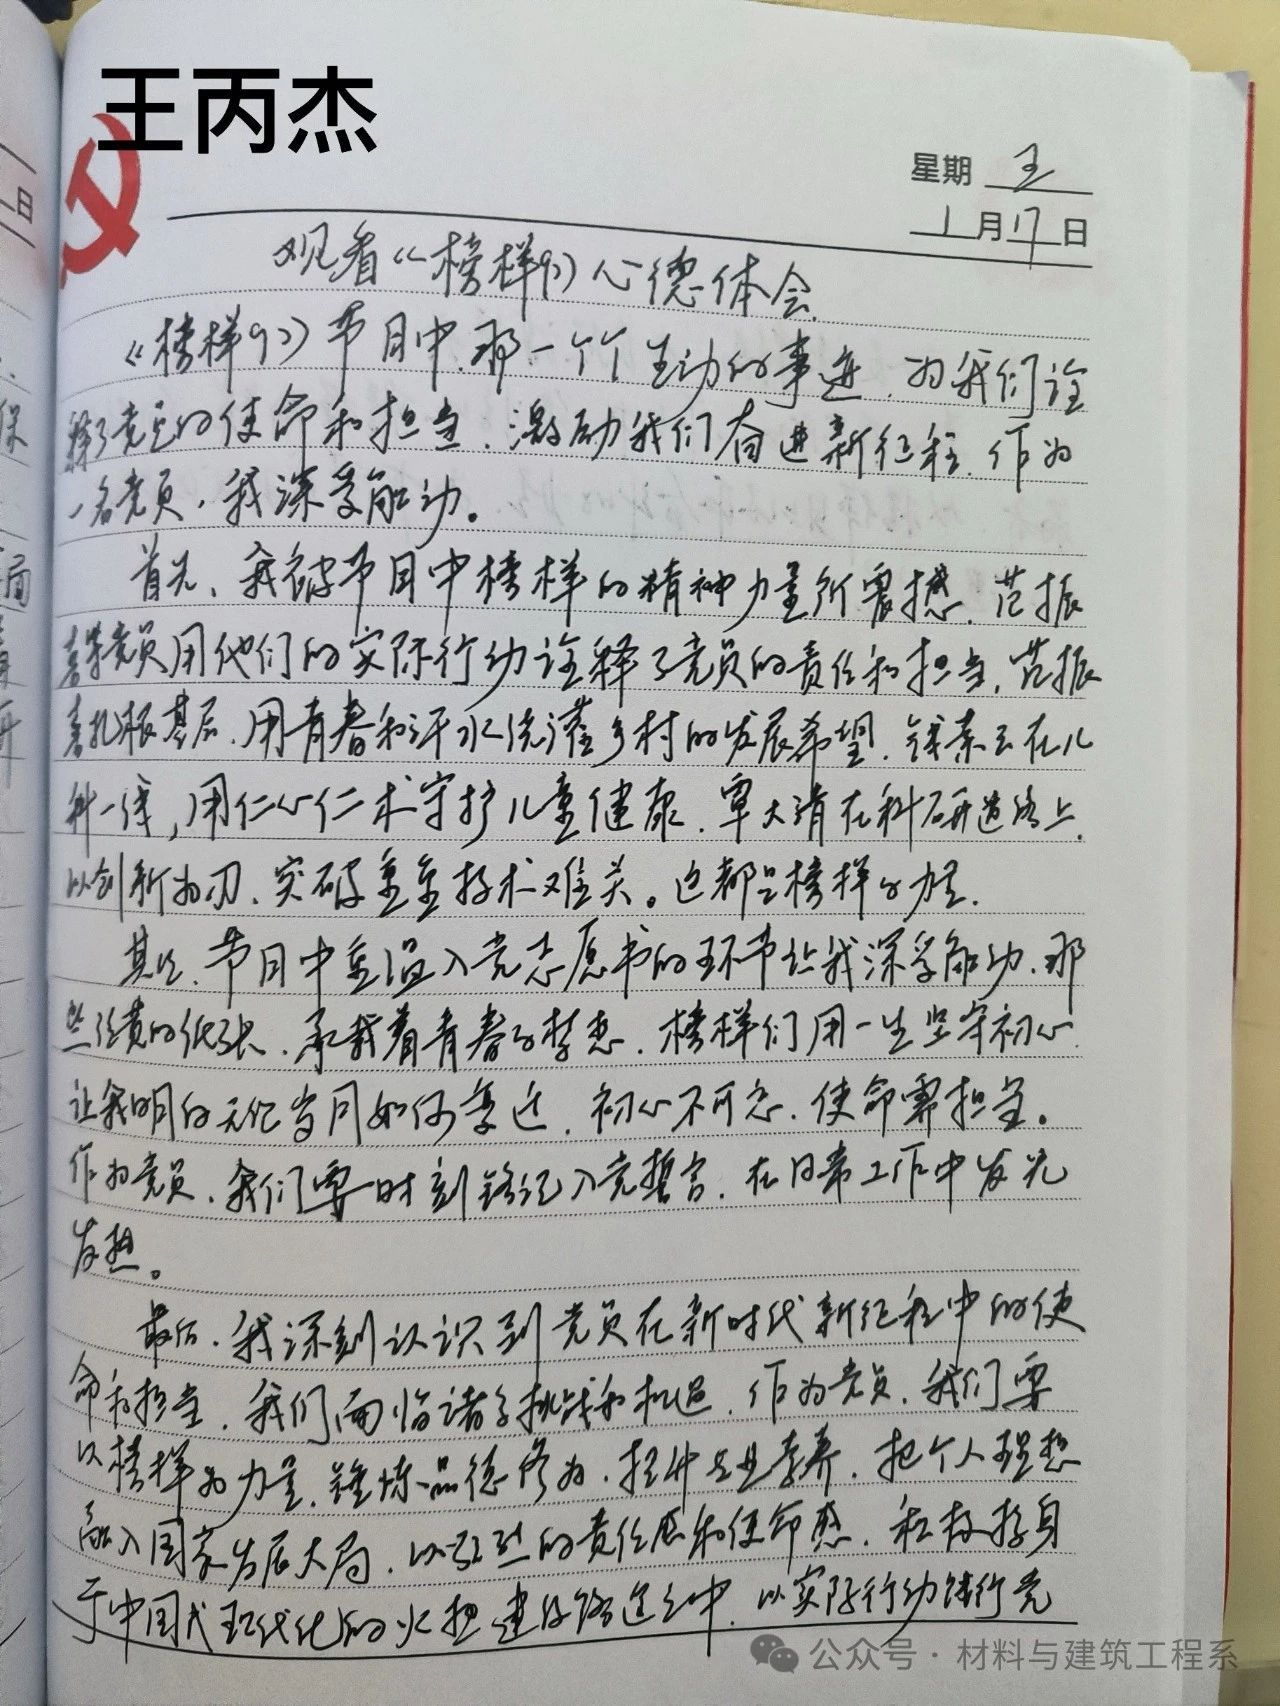 王丙杰
星期 五
1月17日
观看《榜样9》心德体会
《榜样9》节目中,那一个个生动的事迹,为我们诠
释了党员的使命和担当,激励我们奋进新征程,作为
一名党员,我深受触动。
首先,我被节目中榜样的精神力量所震撼,范振
喜等党员用他们的实际行动诠释了党员的责任和担当,范振
喜扎根基层,用青春和汗水浇灌乡村的发展希望,钱素云在儿
科一线,用仁心仁术守护儿童健康,覃大清在科研道路上,
以创新为刃,突破重重技术难关。这都是榜样的力量,
其次,节目中重温入党志愿书的环节让我深受触动,那
些泛黄的纸张,承载着青春的梦想,榜样们用一生坚守初心,
让我明白无论岁月如何变迁,初心不可忘,使命需担当。
作为党员,我们要时刻铭记入党誓言,在日常工作中发光
发热。
最后,我深刻认识到党员在新时代新征程中的使
命和担当,我们面临诸多挑战和机遇,作为党员,我们要
以榜样为力量,锤炼品德修为,提升专业素养,把个人理想
融入国家发展大局,以强烈的责任感和使命感,积极投身
于中国式现代化的火热建设进之中,以实际行动践行党
公众号·材料与建筑工程系